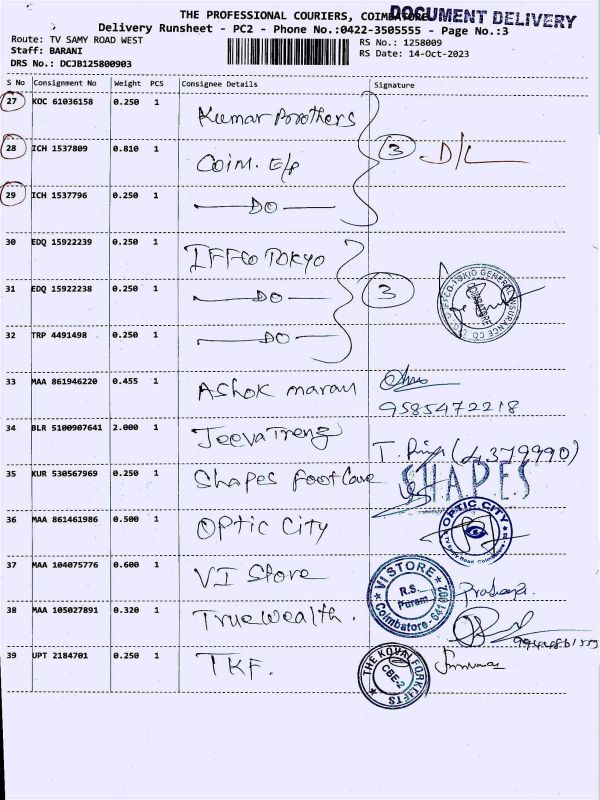 THE PROFESSIONAL COURIERS, COIMBATORE
DOCUMENT DELIVERY
Delivery Runsheet - PC2 - Phone No.:0422-3505555 - Page No.:3
Route: TV SAMY ROAD WEST
RS No.: 1258009
Staff: BARANI
RS Date: 14-Oct-2023
DRS No.: DCJB125800903
S No Consignment No Weight PCS Consignee Details Signature
27 KOC 61036158 0.250 1 Kumar Brothers
28 ICH 1537809 0.810 1 Coim. E/p 3 D/L
29 ICH 1537796 0.250 1 DO
30 EDQ 15922239 0.250 1 IFFCO TOKYO
31 EDQ 15922238 0.250 1 DO 3
IFFCO-TOKIO GENERAL INSURANCE CO. COIMBATORE
32 TRP 4491498 0.250 1 DO
33 MAA 861946220 0.455 1 Ashok maran
9585472218
34 BLR 5100907641 2.000 1 JeevaTreng T. (4379990)
35 KUR 530567969 0.250 1 Shapes foot Care SHAPES
36 MAA 861461986 0.500 1 OPtic City OPTIC CITY
37 MAA 104075776 0.600 1 VI Store VI STORE R.S. Puram Coimbatore - 641 002.
38 MAA 105027891 0.320 1 Truewealth.
39 UPT 2184701 0.250 1 TKF. THE KOVAI FORKLIFTS CBE-2